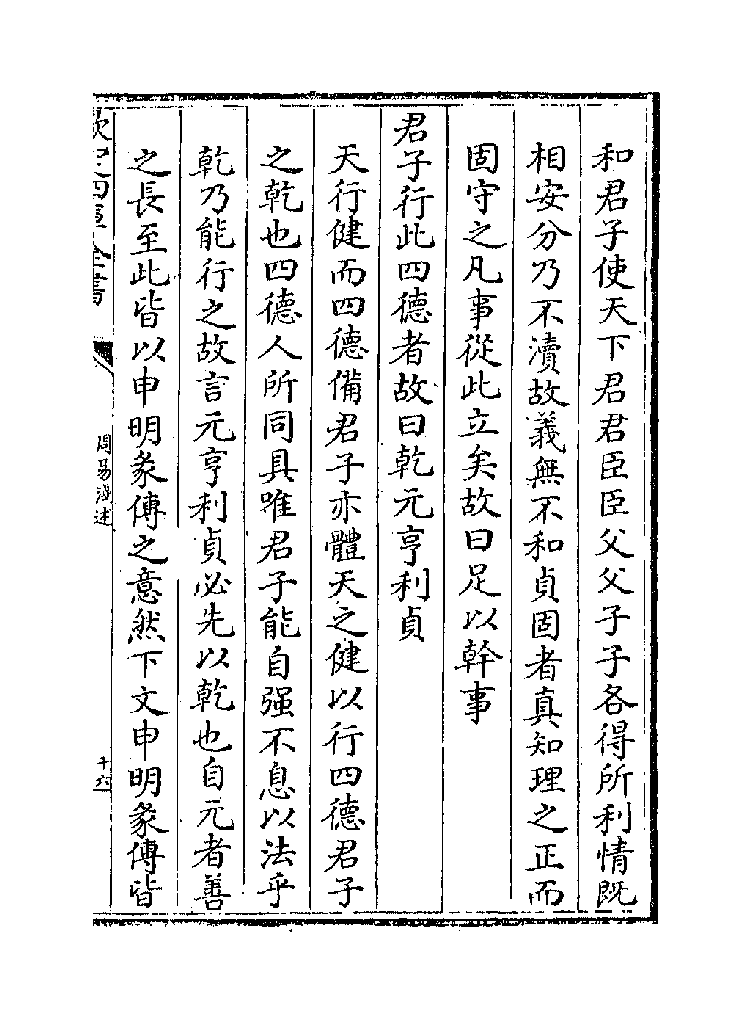 和君子使天下君君臣臣父父子子各得所利情既
相安分乃不瀆故義無不和貞固者真知理之正而
固守之凡事從此立矣故曰足以幹事
君子行此四德者故曰乾元亨利貞
天行健而四德備君子亦體天之健以行四德君子
之乾也四德人所同具唯君子能自强不息以法乎
乾乃能行之故言元亨利貞必先以乾也自元者善
之長至此皆以申明彖傳之意然下文申明彖傳皆
欽定四庫全書
周易淺述